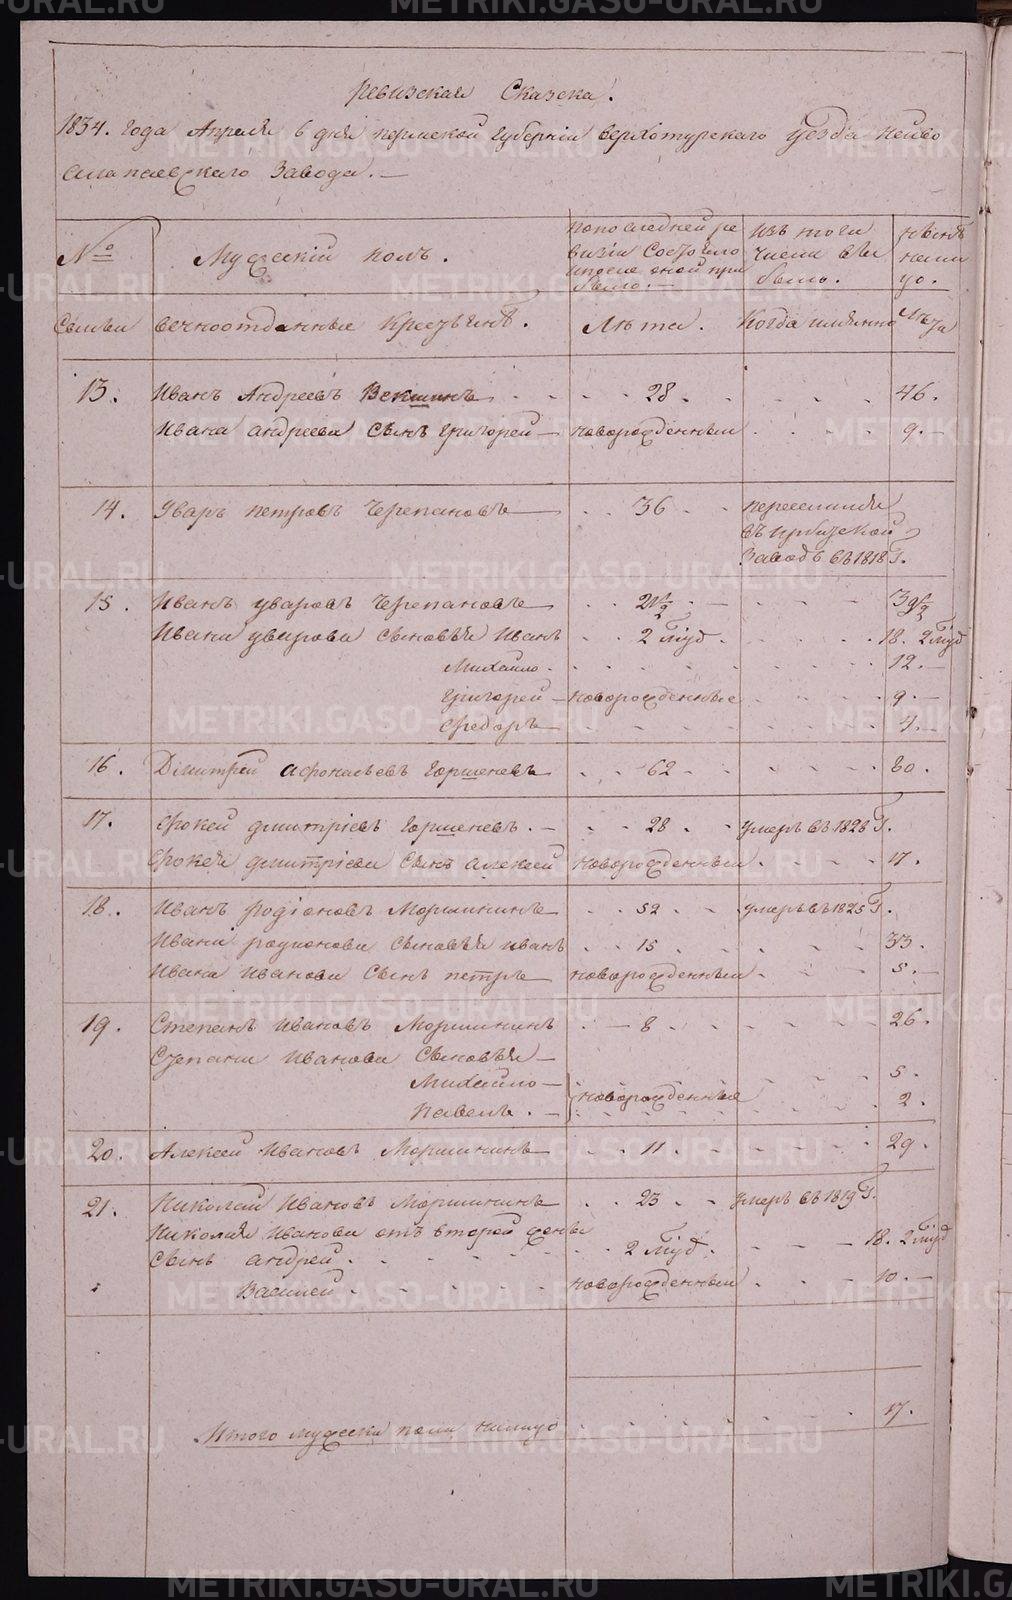 Ревизская Сказка.
1834. года Апреля 6 дня пермской губернiи верхотурскаго уезда Нейво
алапаевскаго Завода. —
№ Мужескiй полъ. По последней ре визiи состояло и после оной при было. — Изъ того числа выбыло. Ныне на лицо.
Семьи вечноотданные Крестьяне. Лѣта. Когда имянно Лѣта
13. Иванъ Андреевъ Векшинъ 28. 46.
Ивана андреева сынъ григорей — новорожденный 9. —
14. Уваръ петровъ Черепановъ 36 переселился
въ ирбитской
Заводъ въ 1818 Г.
15. Иванъ уваровъ Черепановъ 21 1/2 39 1/2
Ивана уварова сыновья Иванъ 2 Мѣс. 18. 2 Мѣс
Михайло. 12. —
Григорей — новорожденные 9. —
Федоръ — 4. —
16. Дмитрей афонасьевъ Горшеневъ 62 80.
17. Фокей дмитрiевъ горшеневъ. — 28 умеръ въ 1828 Г.
Фокея дмитрiева сынъ алексей новорожденный 17.
18. Иванъ родiоновъ Моршининъ 52. умеръ въ 1825 Г.
Ивана родионова сыновья иванъ 15 33.
Ивана иванова сынъ петръ — новорожденный 5. —
19. Степанъ ивановъ Моршининъ 8 26.
Степана иванова сыновья —
Михайло — новорожденные 5.
Павелъ. — 2.
20. Алексей ивановъ Моршининъ 11. 29.
21. Николай ивановъ Моршининъ 23 умеръ въ 1819 Г.
Николая иванова отъ второй жены
сынъ андрей. 2 Мѣс. 18. 2 Мѣс
Василей новорожденный 10. —
Итого мужеска пола налицо 17.
METRIKI.GASO-URAL.RU